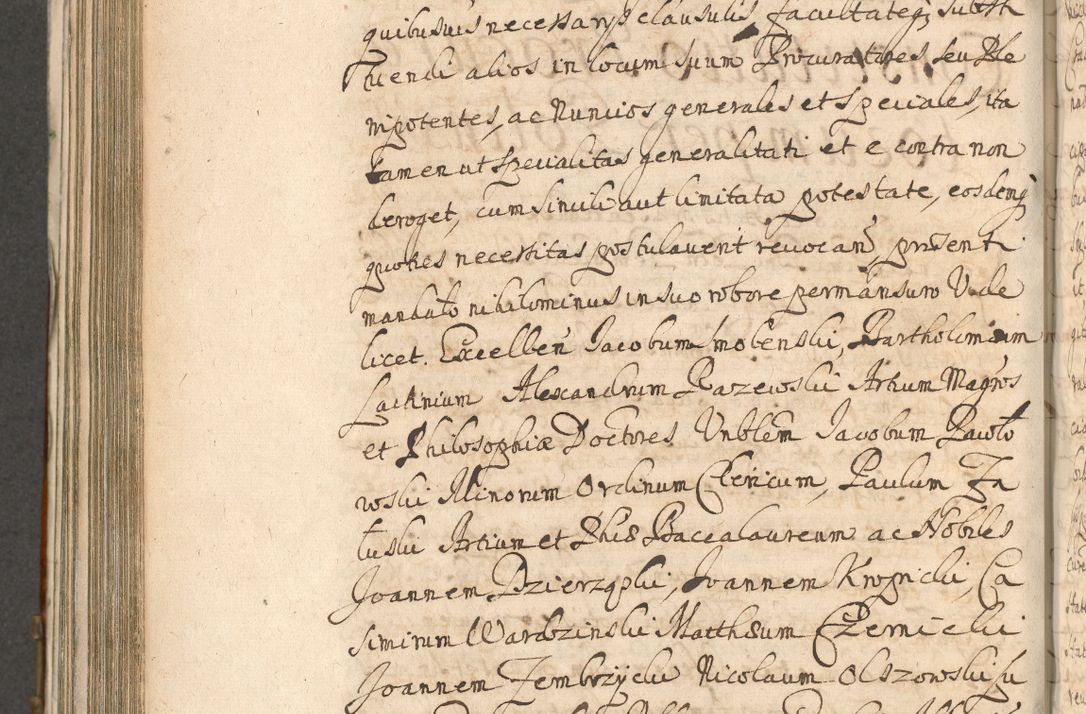 quibusvis necessarijs clausulis, facultateq; substi
tuendi alios in locum suum Procuratores seu Ple
nipotentes, ac Nuncios generales et speciales, ita
tamen ut specialitas generalitati et e contra non
deroget, cum simili aut limitata potestate, eosdemq;
quoties necessitas postulaverit revocan, præsenti
mandato nihilominus in suo robore permansuro Vide
licet. Excellen Jacobum Smobenski, Bartholomæum
Lacknium Alexandrum Pazewski Artium Magros
et Philosophiæ Doctores Vnblem Jacobum Pawło
wski Minorum Ordinum Clericum, Paulum Za
łuski Artium et Phiæ Baccalaureum ac Nobiles
Joannem Dzierząski, Joannem Krognicki, Ca
simirum Wardzinski Matthæum Czernicki
Joannem Zembrzycki Nicolaum Olszowski su